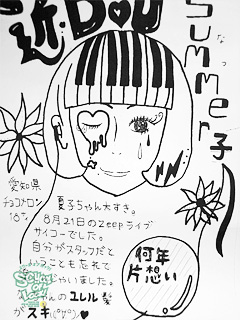 近、DOU
Summer子
なつ
愛知県
チョコメロン
18才
夏子ちゃん大すき。
8月21日のzeepライブ
サイコーでした。
自分がスタッフだと
いうことも忘れて
ちゃいました。
んのユレル髪
がスキ
何年
片想い
SCHOOL OF LOCK!